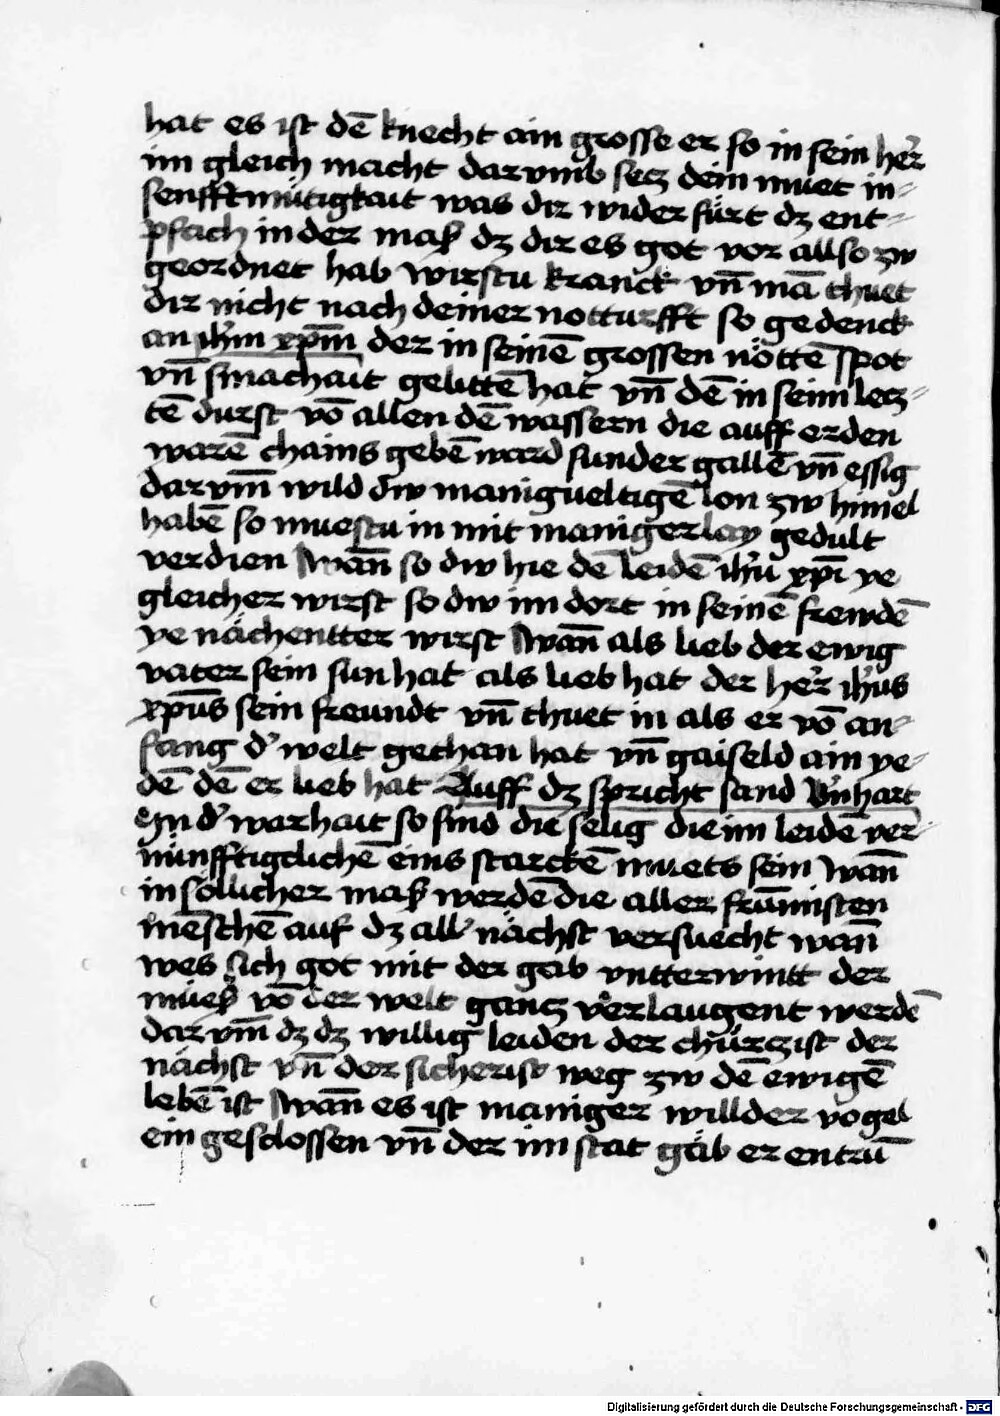 hat es ist dē knecht ain grosse er so in sein her̄
im gleich macht darvmb secz dein muet in-
senfftmütigkait was dir wider fürt dz ent-
pfach in der maß dz dir es got vor allso zw
geordnet hab wirstu kranck vn̄ mā thuet
dir nicht nach deiner notturfft so gedenck
an ihm̄ xpm̄ der in seinē grossen nöttē spot
vn̄ smachait gelittē hat vn̄ dē in seim lecz-
tē durst vō allen dē wassern die auff erden
warē chains gebē ward sunder gallē vn̄ essig
darvm̄ wild dw manigueltigē lon zw himel
habē so muestu in mit manigerlay gedult
verdien wan̄ so dw hie dē leidē ihū xpi ye
gleicher wirst so dw im dort in seinē frewdē
ye nächentter wirst wan̄ als lieb der ewig
vater sein sun hat als lieb hat der her̄ ihūs
xpūs sein freundt vn̄ thuet in als er vō an-
fang d' welt gethan hat vn̄ gaiseld ain ye-
dē dē er lieb hat Auff dz spricht sand Bn̄hart
In d' warhait so sind die selig die im leidē ver
nünfftigclichē eins starckē muets sein wan̄
in sölücher maß werdē die aller frūmisten
mēschē auf dz all' nächst versuecht wan̄
wes sich got mit der gab vntterwintt der
müeß vō der welt gancz verlaugent werdē
darvm̄ dz dz willig leiden der chürczist der
nächst vn̄ der sicherist weg zw dē ewigē
lebē ist wan̄ es ist maniger willder vogel
ein gesclossen vn̄ der im stat gäb er entrū
Digitalisierung gefördert durch die Deutsche Forschungsgemeinschaft - DFG